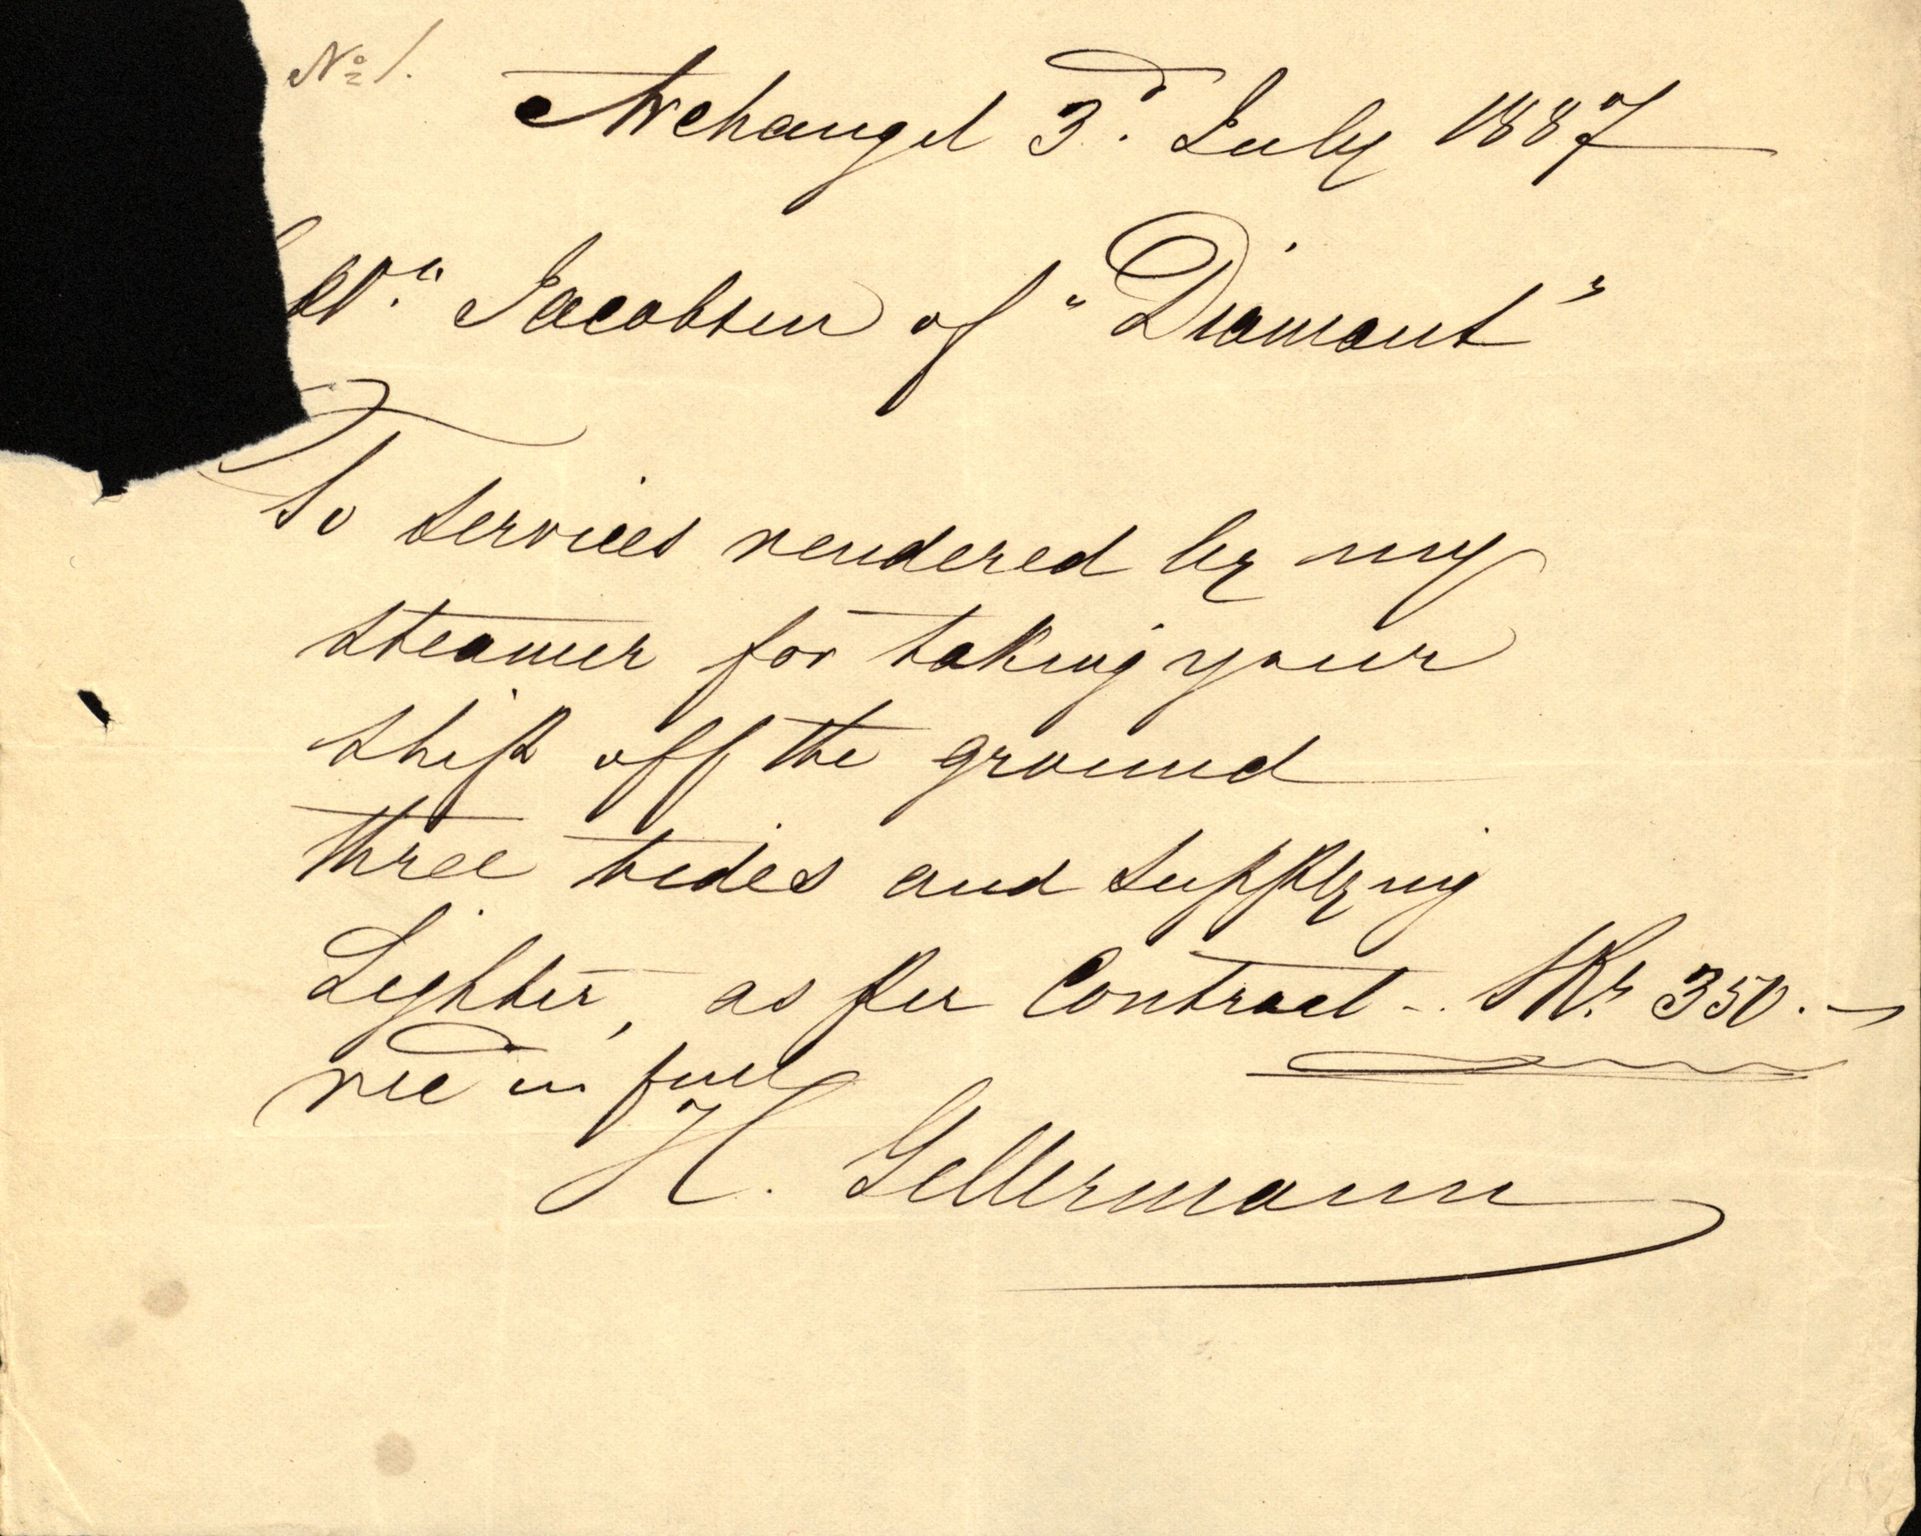 No 1.
Archangel 3d. July 1887
Jacobsen of "Diamant"
To services rendered by my
steamer for taking your
ship off the ground
three tides and supplying
Lighter, as per Contract - SRs 350.-
rec in full
H. Gellermann